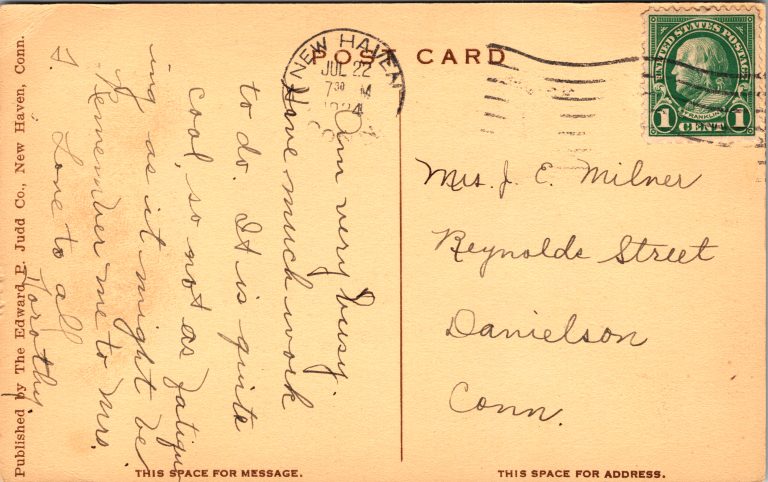 POST CARD
NEW HAVEN
JUL 22
7 30 M
UNITED STATES POSTAGE
FRANKLIN
1 CENT 1
Am very busy.
Have much work
to do. It is quite
cool, so not as fatigu
ing as it might be
Remember me to Mrs.
Love to all
Dorothy.
Mrs. J. E. Milner
Reynolds Street
Danielson
Conn.
Published by The Edward P. Judd Co., New Haven, Conn.
THIS SPACE FOR MESSAGE.
THIS SPACE FOR ADDRESS.